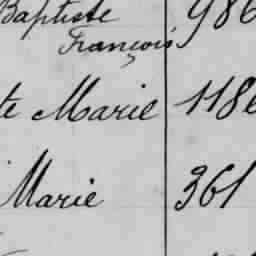 Baptiste 986
François
te Marie 1186
Marie 361